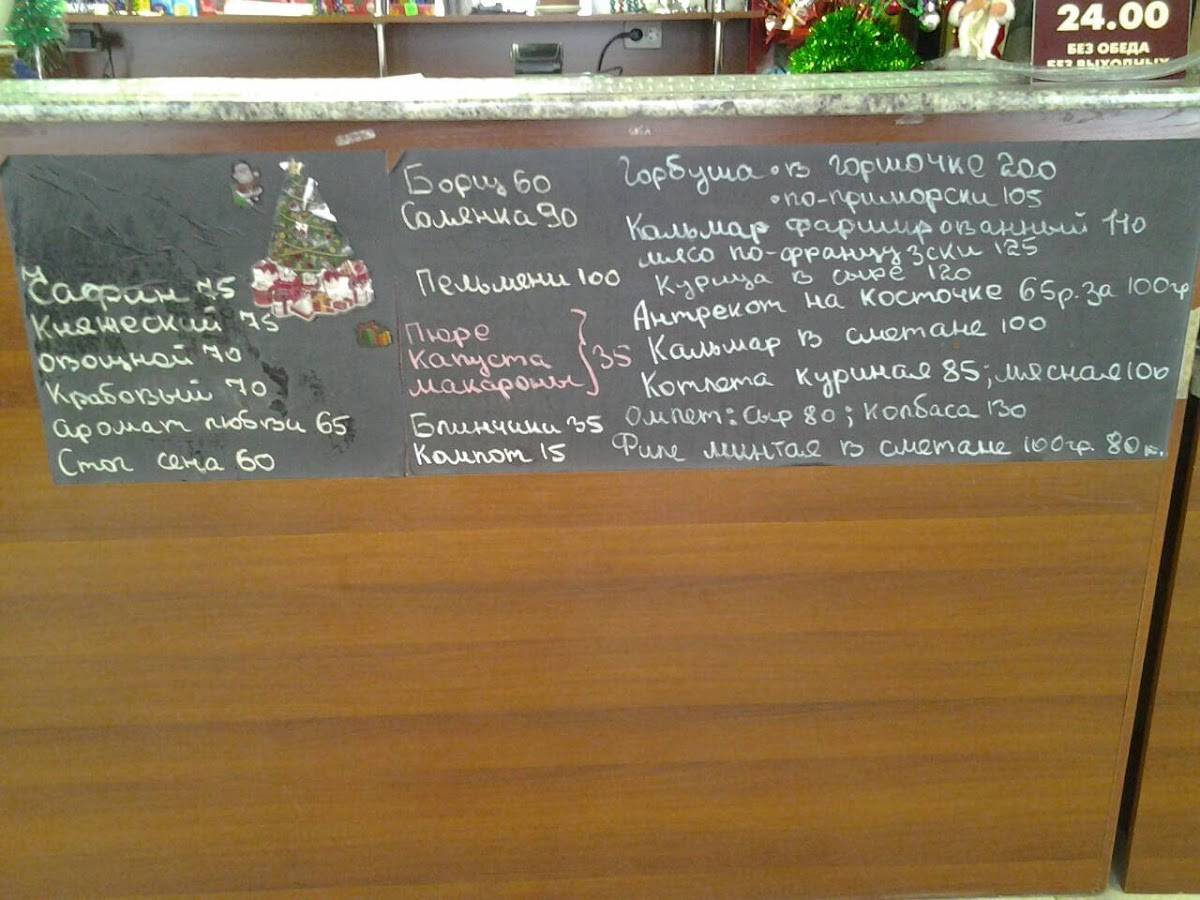 24.00
БЕЗ ОБЕДА
БЕЗ ВЫХОДНЫХ
Сафин 75
Княжеский 75
овощной 70
Крабовый 70
аромат любви 65
Стог сена 60
Борщ 60
Солянка 90
Пельмени 100
Пюре
Капуста
макароны } 35
Блинчики 35
Компот 15
Горбуша • в горшочке 200
• по-приморски 105
Кальмар фаршированный 110
мясо по-французски 125
Курица в сыре 120
Антрекот на косточке 65р. за 100гр
Кальмар в сметане 100
Котлета куриная 85; мясная 100
Омлет: сыр 80; колбаса 130
Филе минтая в сметане 100гр. 80